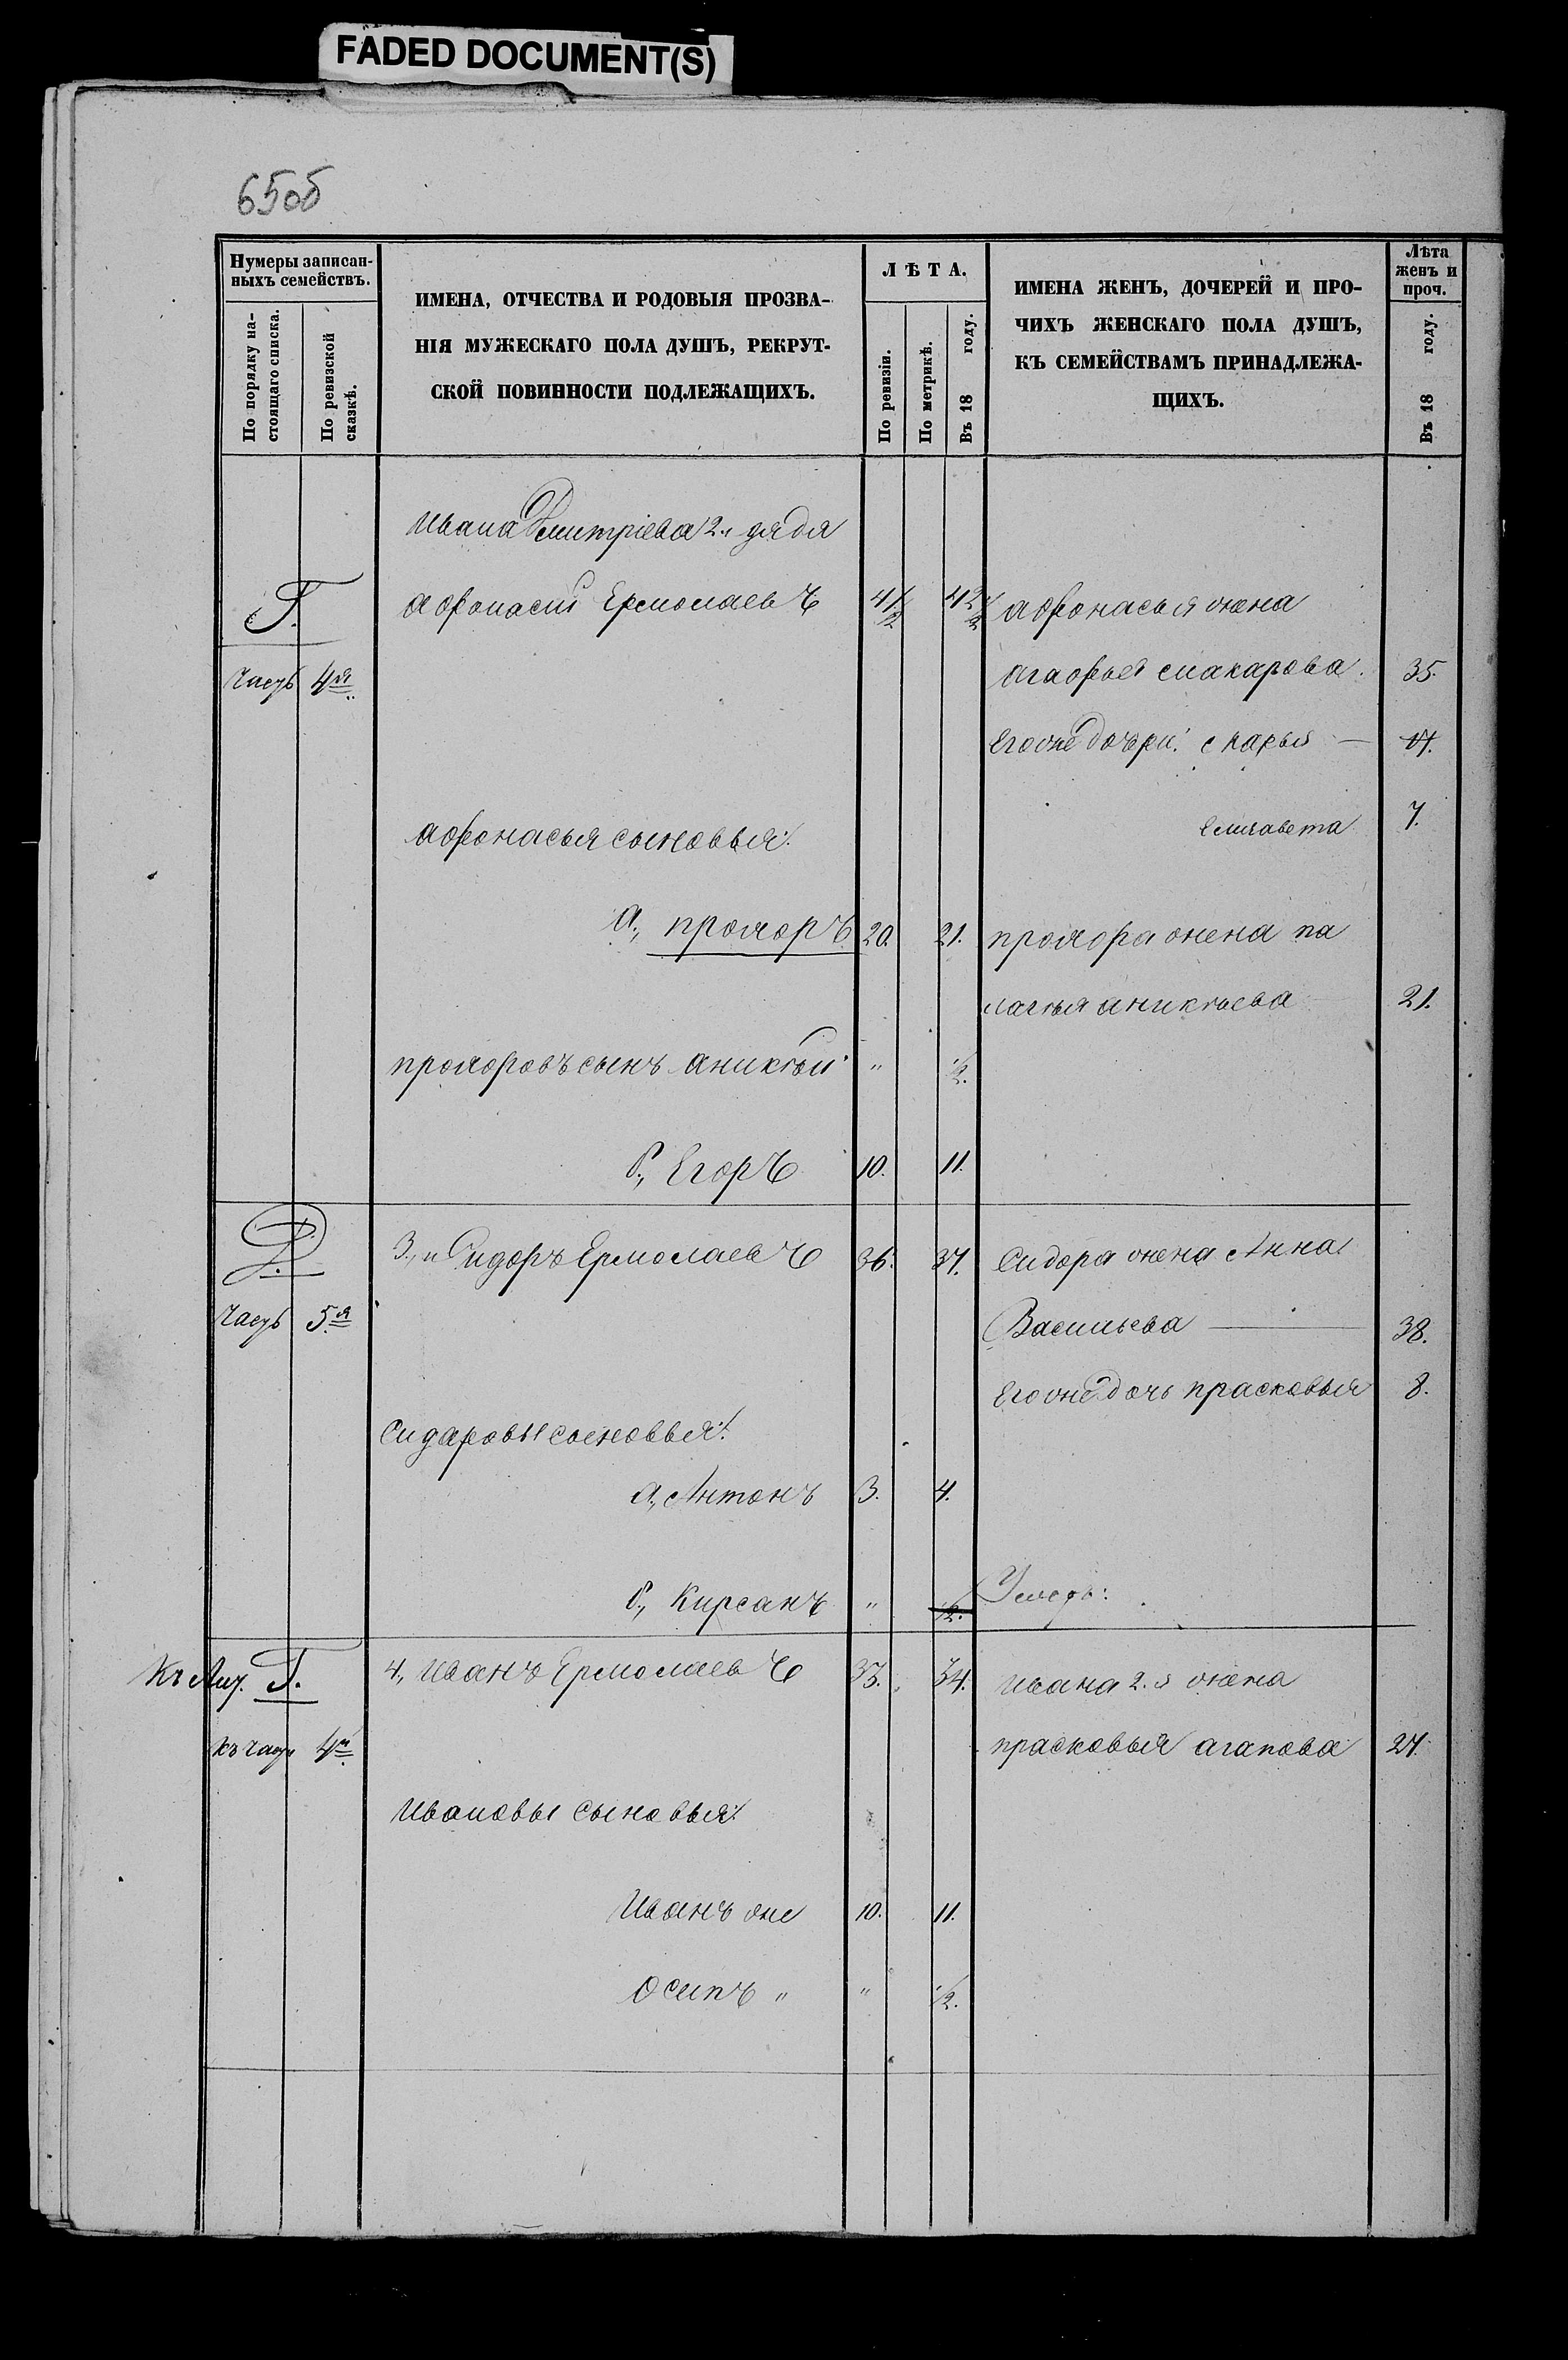 FADED DOCUMENT(S)
65об
Нумеры записан-
ныхъ семействъ.
По порядку на-
стоящаго списка.
По ревизской
сказкѣ.
ИМЕНА, ОТЧЕСТВА И РОДОВЫЯ ПРОЗВА-
НІЯ МУЖЕСКАГО ПОЛА ДУШЪ, РЕКРУТ-
СКОЙ ПОВИННОСТИ ПОДЛЕЖАЩИХЪ.
ЛѢТА.
По ревизіи.
По метрикѣ.
Въ 18 году.
ИМЕНА ЖЕНЪ, ДОЧЕРЕЙ И ПРО-
ЧИХЪ ЖЕНСКАГО ПОЛА ДУШЪ,
КЪ СЕМЕЙСТВАМЪ ПРИНАДЛЕЖА-
ЩИХЪ.
Лѣта
женъ и
проч.
Въ 18 году.
Ивана Дмитріева 2. дядя
Г. Афонасій Ермолаевъ 41 1/2 42 1/2 Афонасья жена
Часть 4я Агафья Макарова. 35.
Егоже дочери: Марья — 17.
Елизавета 7.
Афонасья сыновья:
а, Прохоръ 20. 21. Прохора жена Па
лагѣя Аникѣева 21.
Прохоровъ сынъ Аникѣй " 1/2.
б, Егоръ 10. 11.
Д. 3, Сидоръ Ермолаевъ 36. 37. Сидора жена Анна
Часть 5.я Васильева — 38.
Егоже дочь Прасковья 8.
Сидаровы сыновья:
а, Антонъ 3. 4.
б, Кирсанъ " 1/2.
Къ Г. 4, Иванъ Ермолаевъ 33. 34. Ивана 2.й жена
къ 4й Прасковья Агапова 27.
Ивановы сыновья:
Иванъ же 10. 11.
Осипъ " " 1/2.